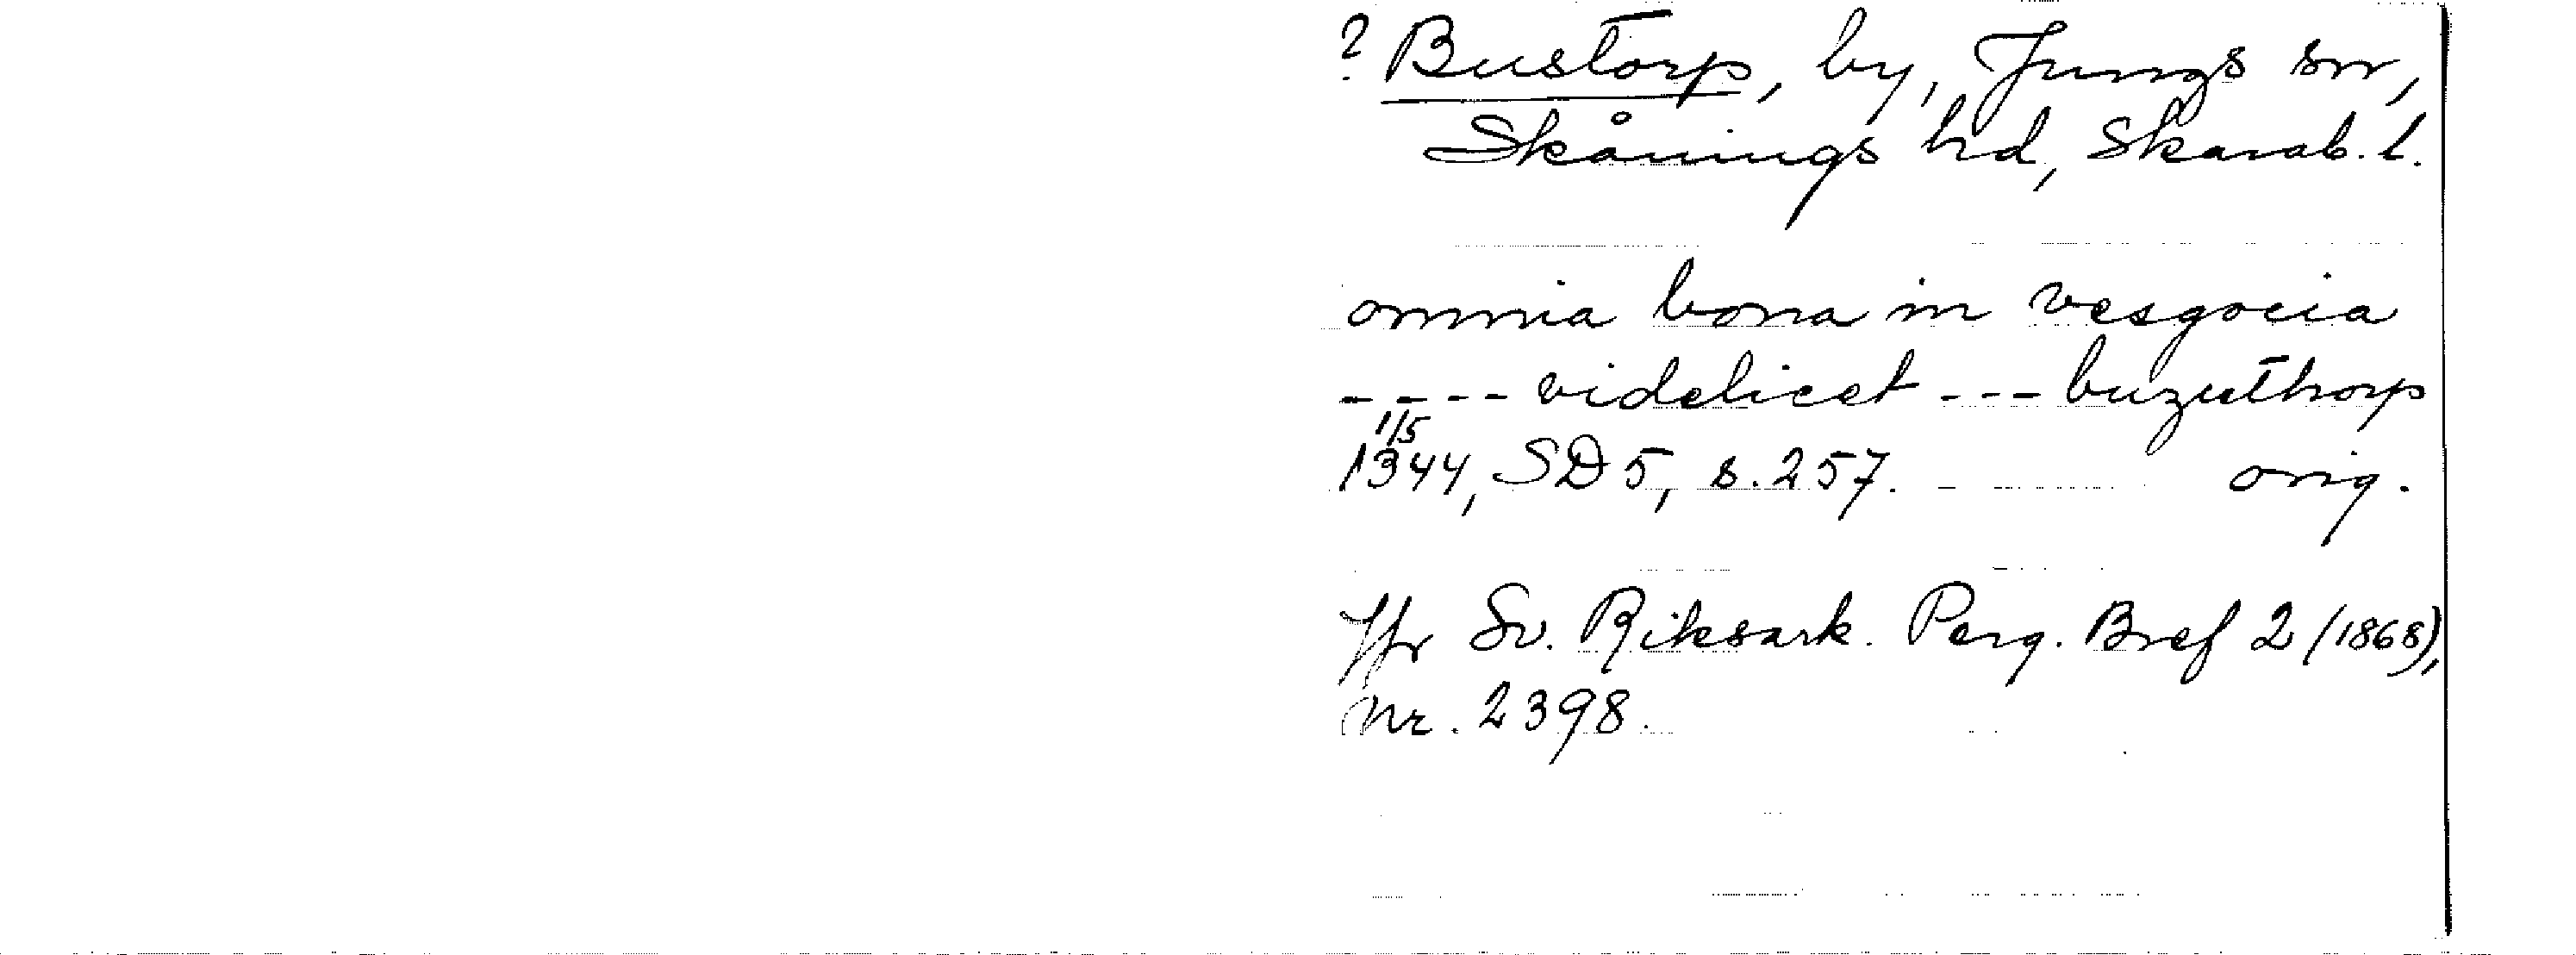 ? Bustorp, by, Jungs sn,
Skånings hd, Skarab. l.
omnia bona in vesgocia
---- videlicet --- buzuthorp
1/5
1344, SD 5, s. 257. orig.
Jfr Sv. Riksark. Perg. Bref 2 (1868),
nr. 2398.